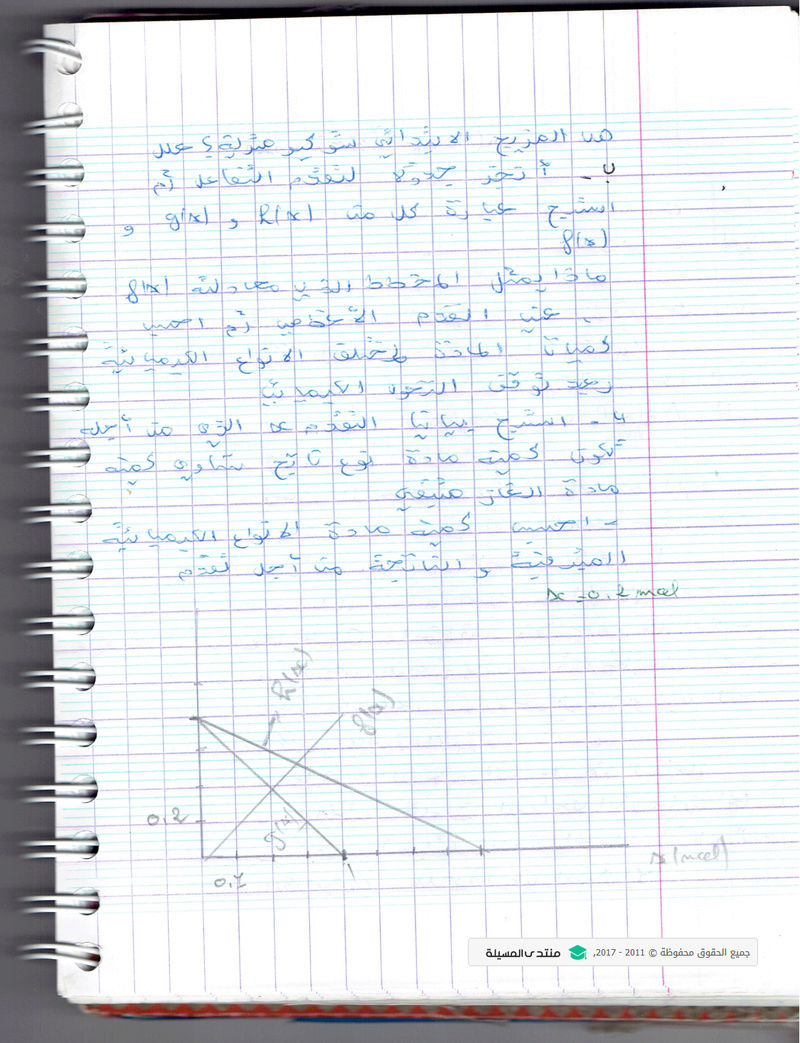 هل المزيج الابتدائي ستوكيومترية؟ علل
ب - أنجز جدولا لتقدم التفاعل ثم
استنتج عبارة كل من h(x) و g(x) و
f(x)
ماذا يمثل المخطط الذي معادلته f(x)
عين التقدم الأعظمي ثم احسب
كميات المادة لمختلف الانواع الكيميائية
بعد توقف التحول الكيميائي
4 - استنتج بيانيا التقدم x الذي من أجله
تكون كمية مادة نوع ناتج تساوي كمية
مادة الغاز متبقي
- احسب كمية مادة الانواع الكيميائية
المتبقية و الناتجة من أجل تقدم
x = 0,2 mol
h(x)
f(x)
g(x)
0,2
0,1
x (mol)
جميع الحقوق محفوظة © 2011 - 2017, منتدى المسيلة